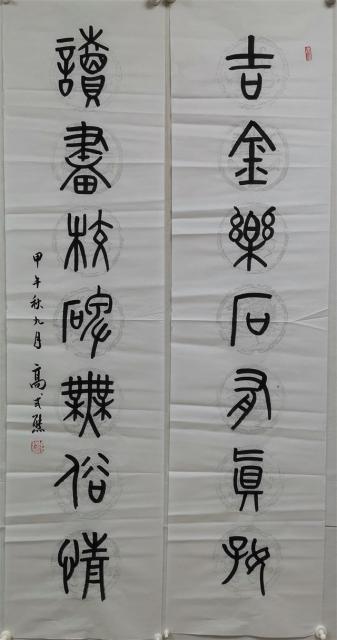 吉金樂石有真好
讀畫校碑無俗情
甲午秋九月 高式熊